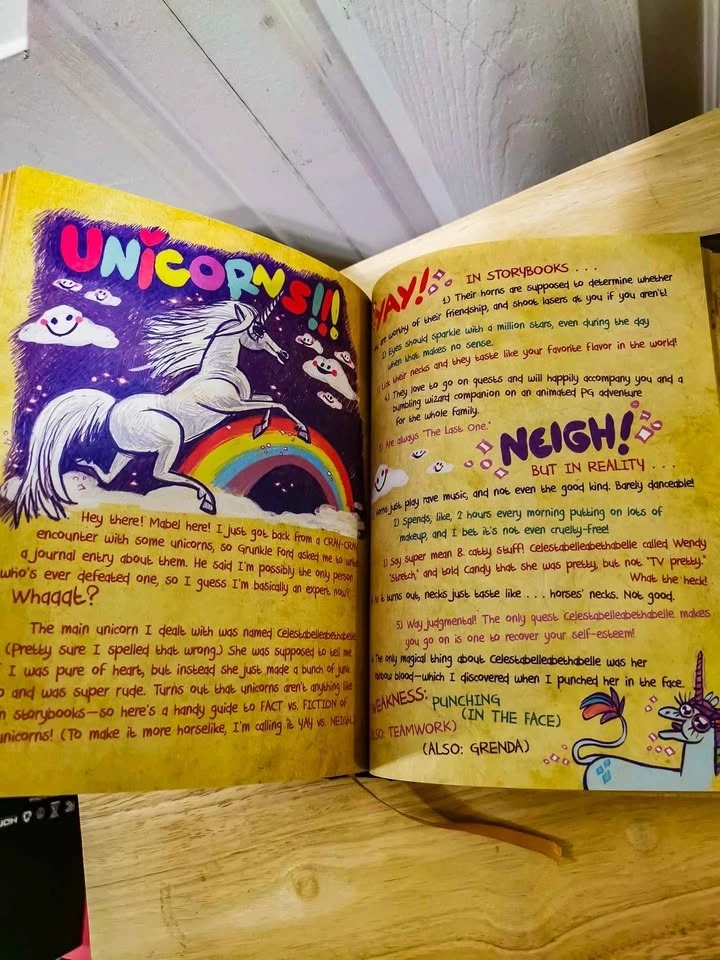 UNICORNS!!!
Hey there! Mabel here! I just got back from a CRAY-CRAY
encounter with some unicorns, so Grunkle Ford asked me to write
a journal entry about them. He said I'm possibly the only person
who's ever defeated one, so I guess I'm basically an expert now?
Whaaat?
The main unicorn I dealt with was named Celestabellebethabelle
(Pretty sure I spelled that wrong.) She was supposed to tell me
I was pure of heart, but instead she just made a bunch of junk
and was super rude. Turns out that unicorns aren't anything like
in storybooks—so here's a handy guide to FACT vs. FICTION of
unicorns! (To make it more horselike, I'm calling it YAY vs. NEIGH.)
YAY!
IN STORYBOOKS . . .
1) Their horns are supposed to determine whether
worthy of their friendship, and shoot lasers at you if you aren't!
Eyes should sparkle with a million stars, even during the day
when that makes no sense.
Lick their necks and they taste like your favorite flavor in the world!
4) They love to go on quests and will happily accompany you and a
bumbling wizard companion on an animated PG adventure
for the whole family.
Are always "The Last One."
NEIGH!
BUT IN REALITY . . .
just play rave music, and not even the good kind. Barely danceable!
2) Spends, like, 2 hours every morning putting on lots of
makeup, and I bet it's not even cruelty-free!
3) Say super mean & catty stuff! Celestabelleabethabelle called Wendy
"Stretch," and told Candy that she was pretty, but not "TV pretty."
What the heck!
it turns out, necks just taste like . . . horses' necks. Not good.
5) Way judgmental! The only quest Celestabelleabethabelle makes
you go on is one to recover your self-esteem!
The only magical thing about Celestabelleabethabelle was her
rainbow blood—which I discovered when I punched her in the face.
WEAKNESS: PUNCHING
(IN THE FACE)
ALSO: TEAMWORK)
(ALSO: GRENDA)